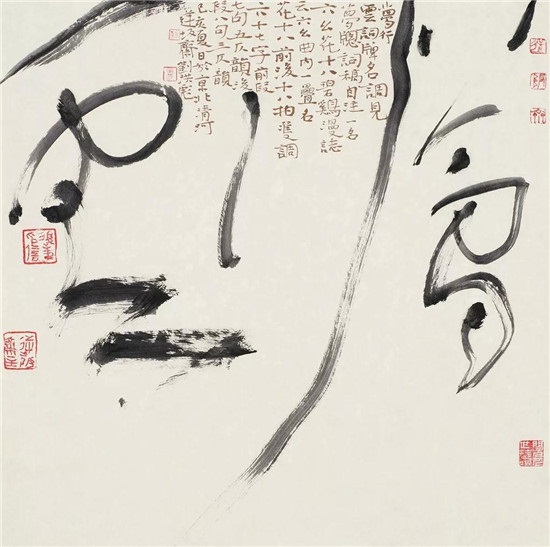 夢行雲
夢行
雲詞牌名調見
夢窗詞稿自注一名
六幺花十八碧鷄漫誌
云六幺曲内一疊名
花十八前後十八拍雙調
六十七字前段
七句五仄韻後
段八句三仄韻
己亥夏日於京北清河
逆坂齋劉洪彪